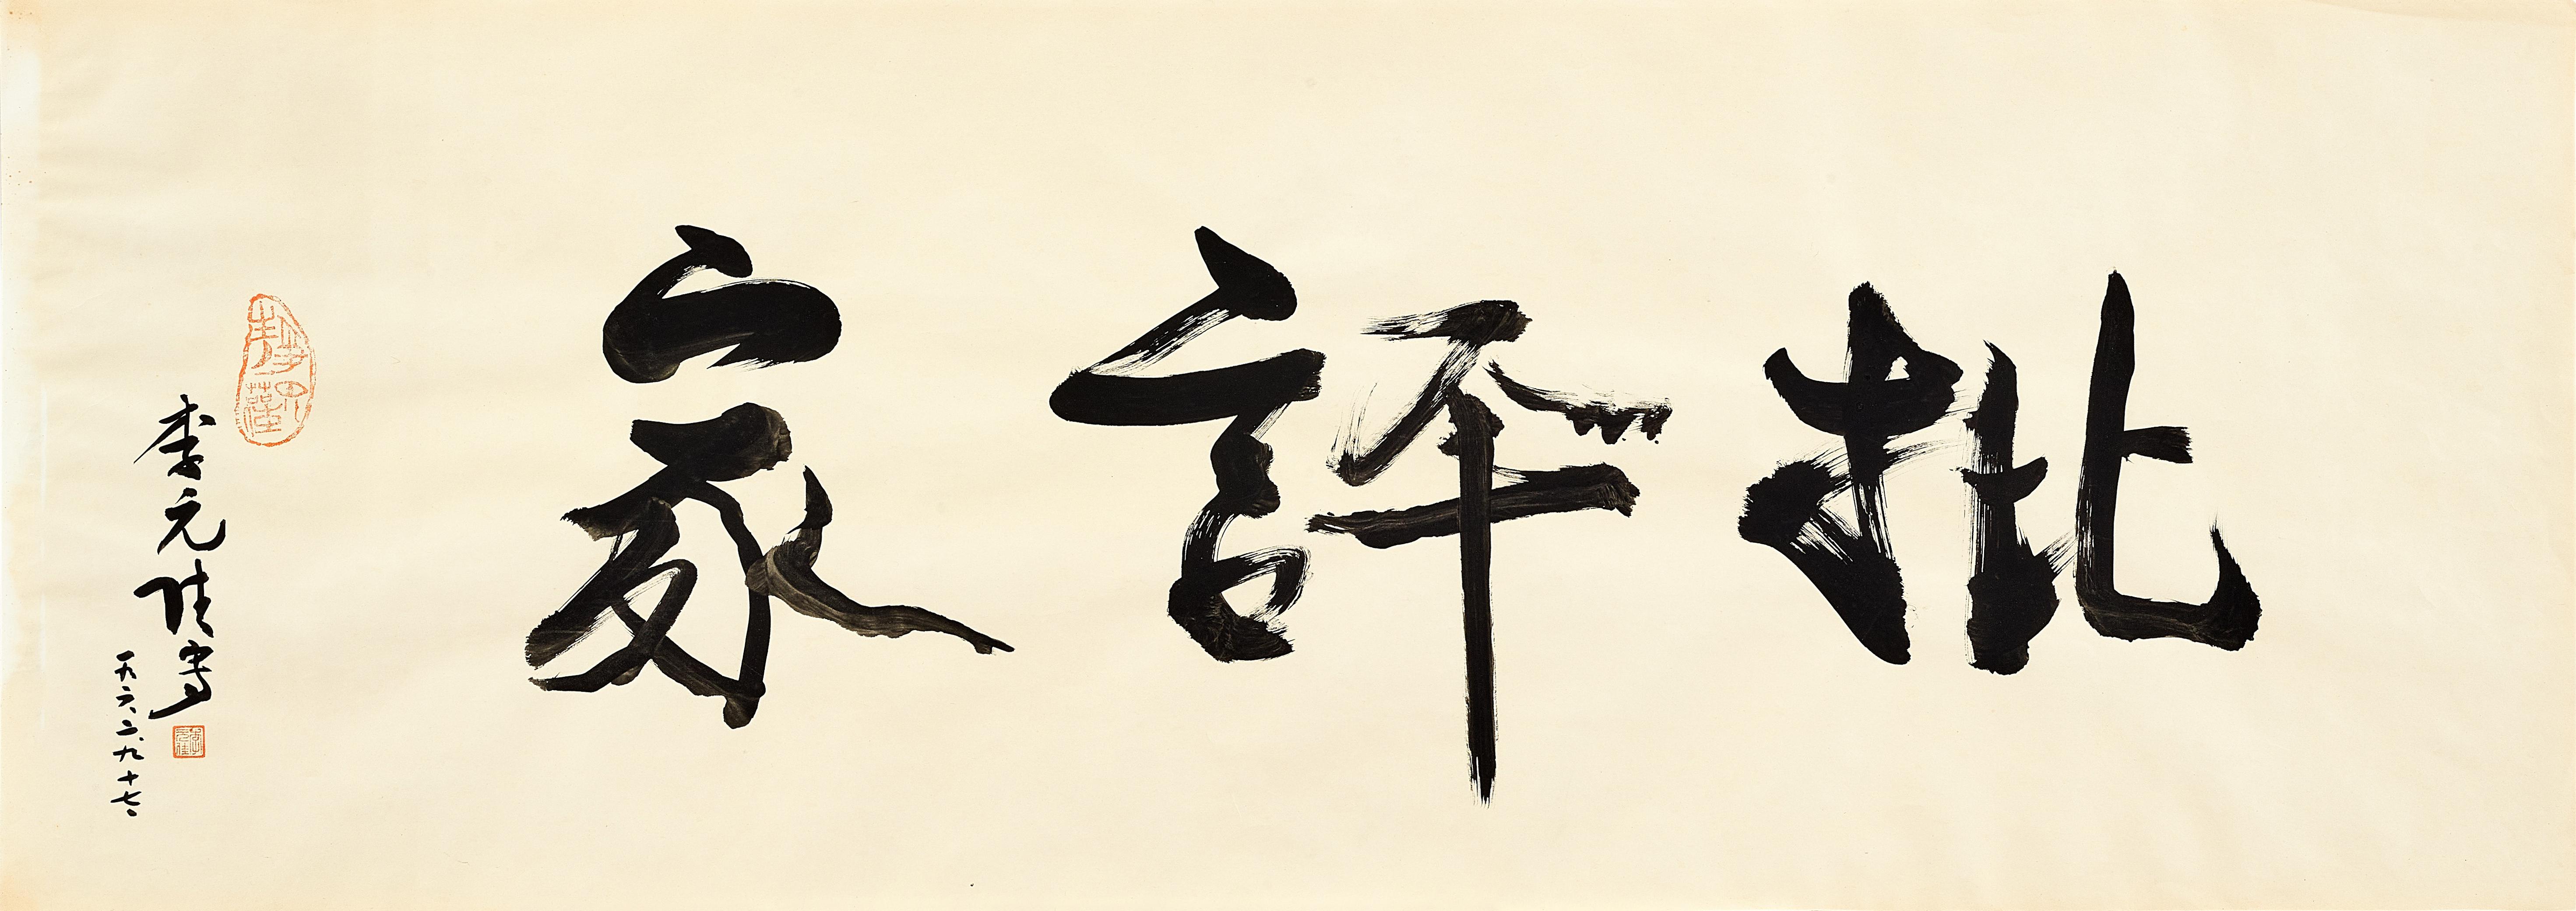 批評家
李元佳寫
一九六二、九、十七、